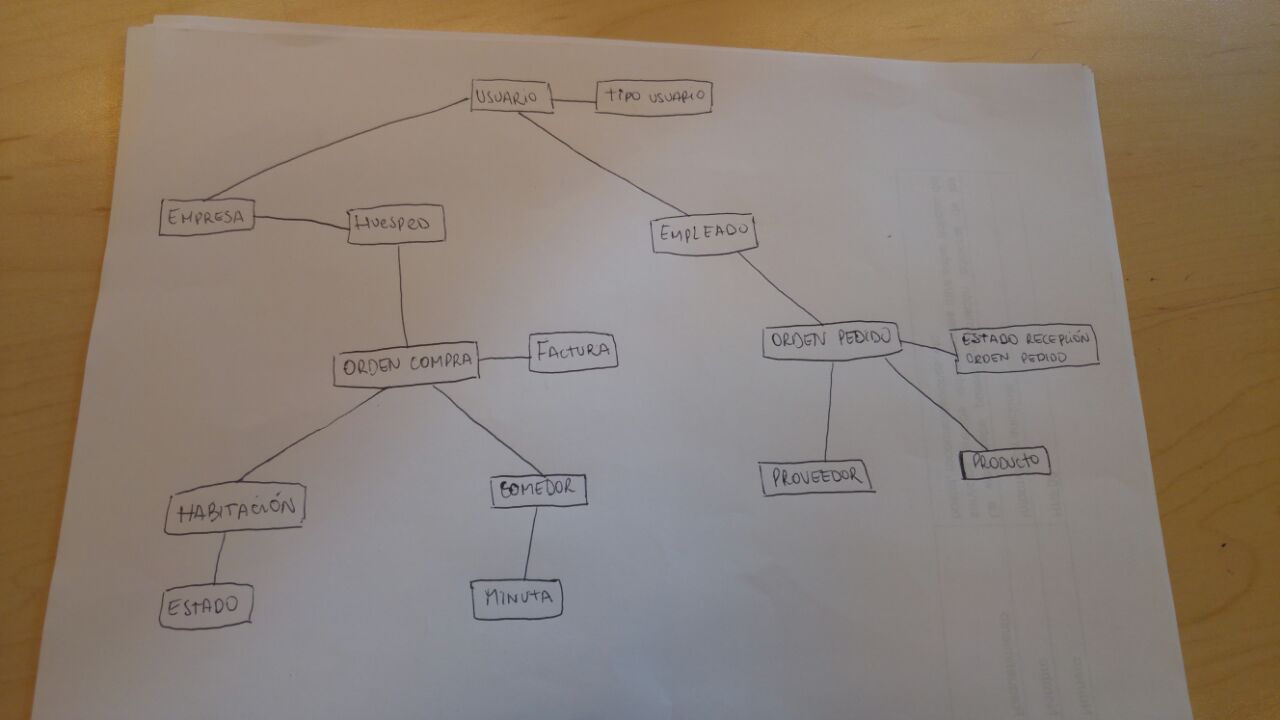 USUARIO
TIPO USUARIO
EMPRESA
HUESPED
EMPLEADO
ORDEN COMPRA
FACTURA
ORDEN PEDIDO
ESTADO RECEPCIÓN
ORDEN PEDIDO
HABITACIÓN
COMEDOR
PROVEEDOR
PRODUCTO
ESTADO
MINUTA